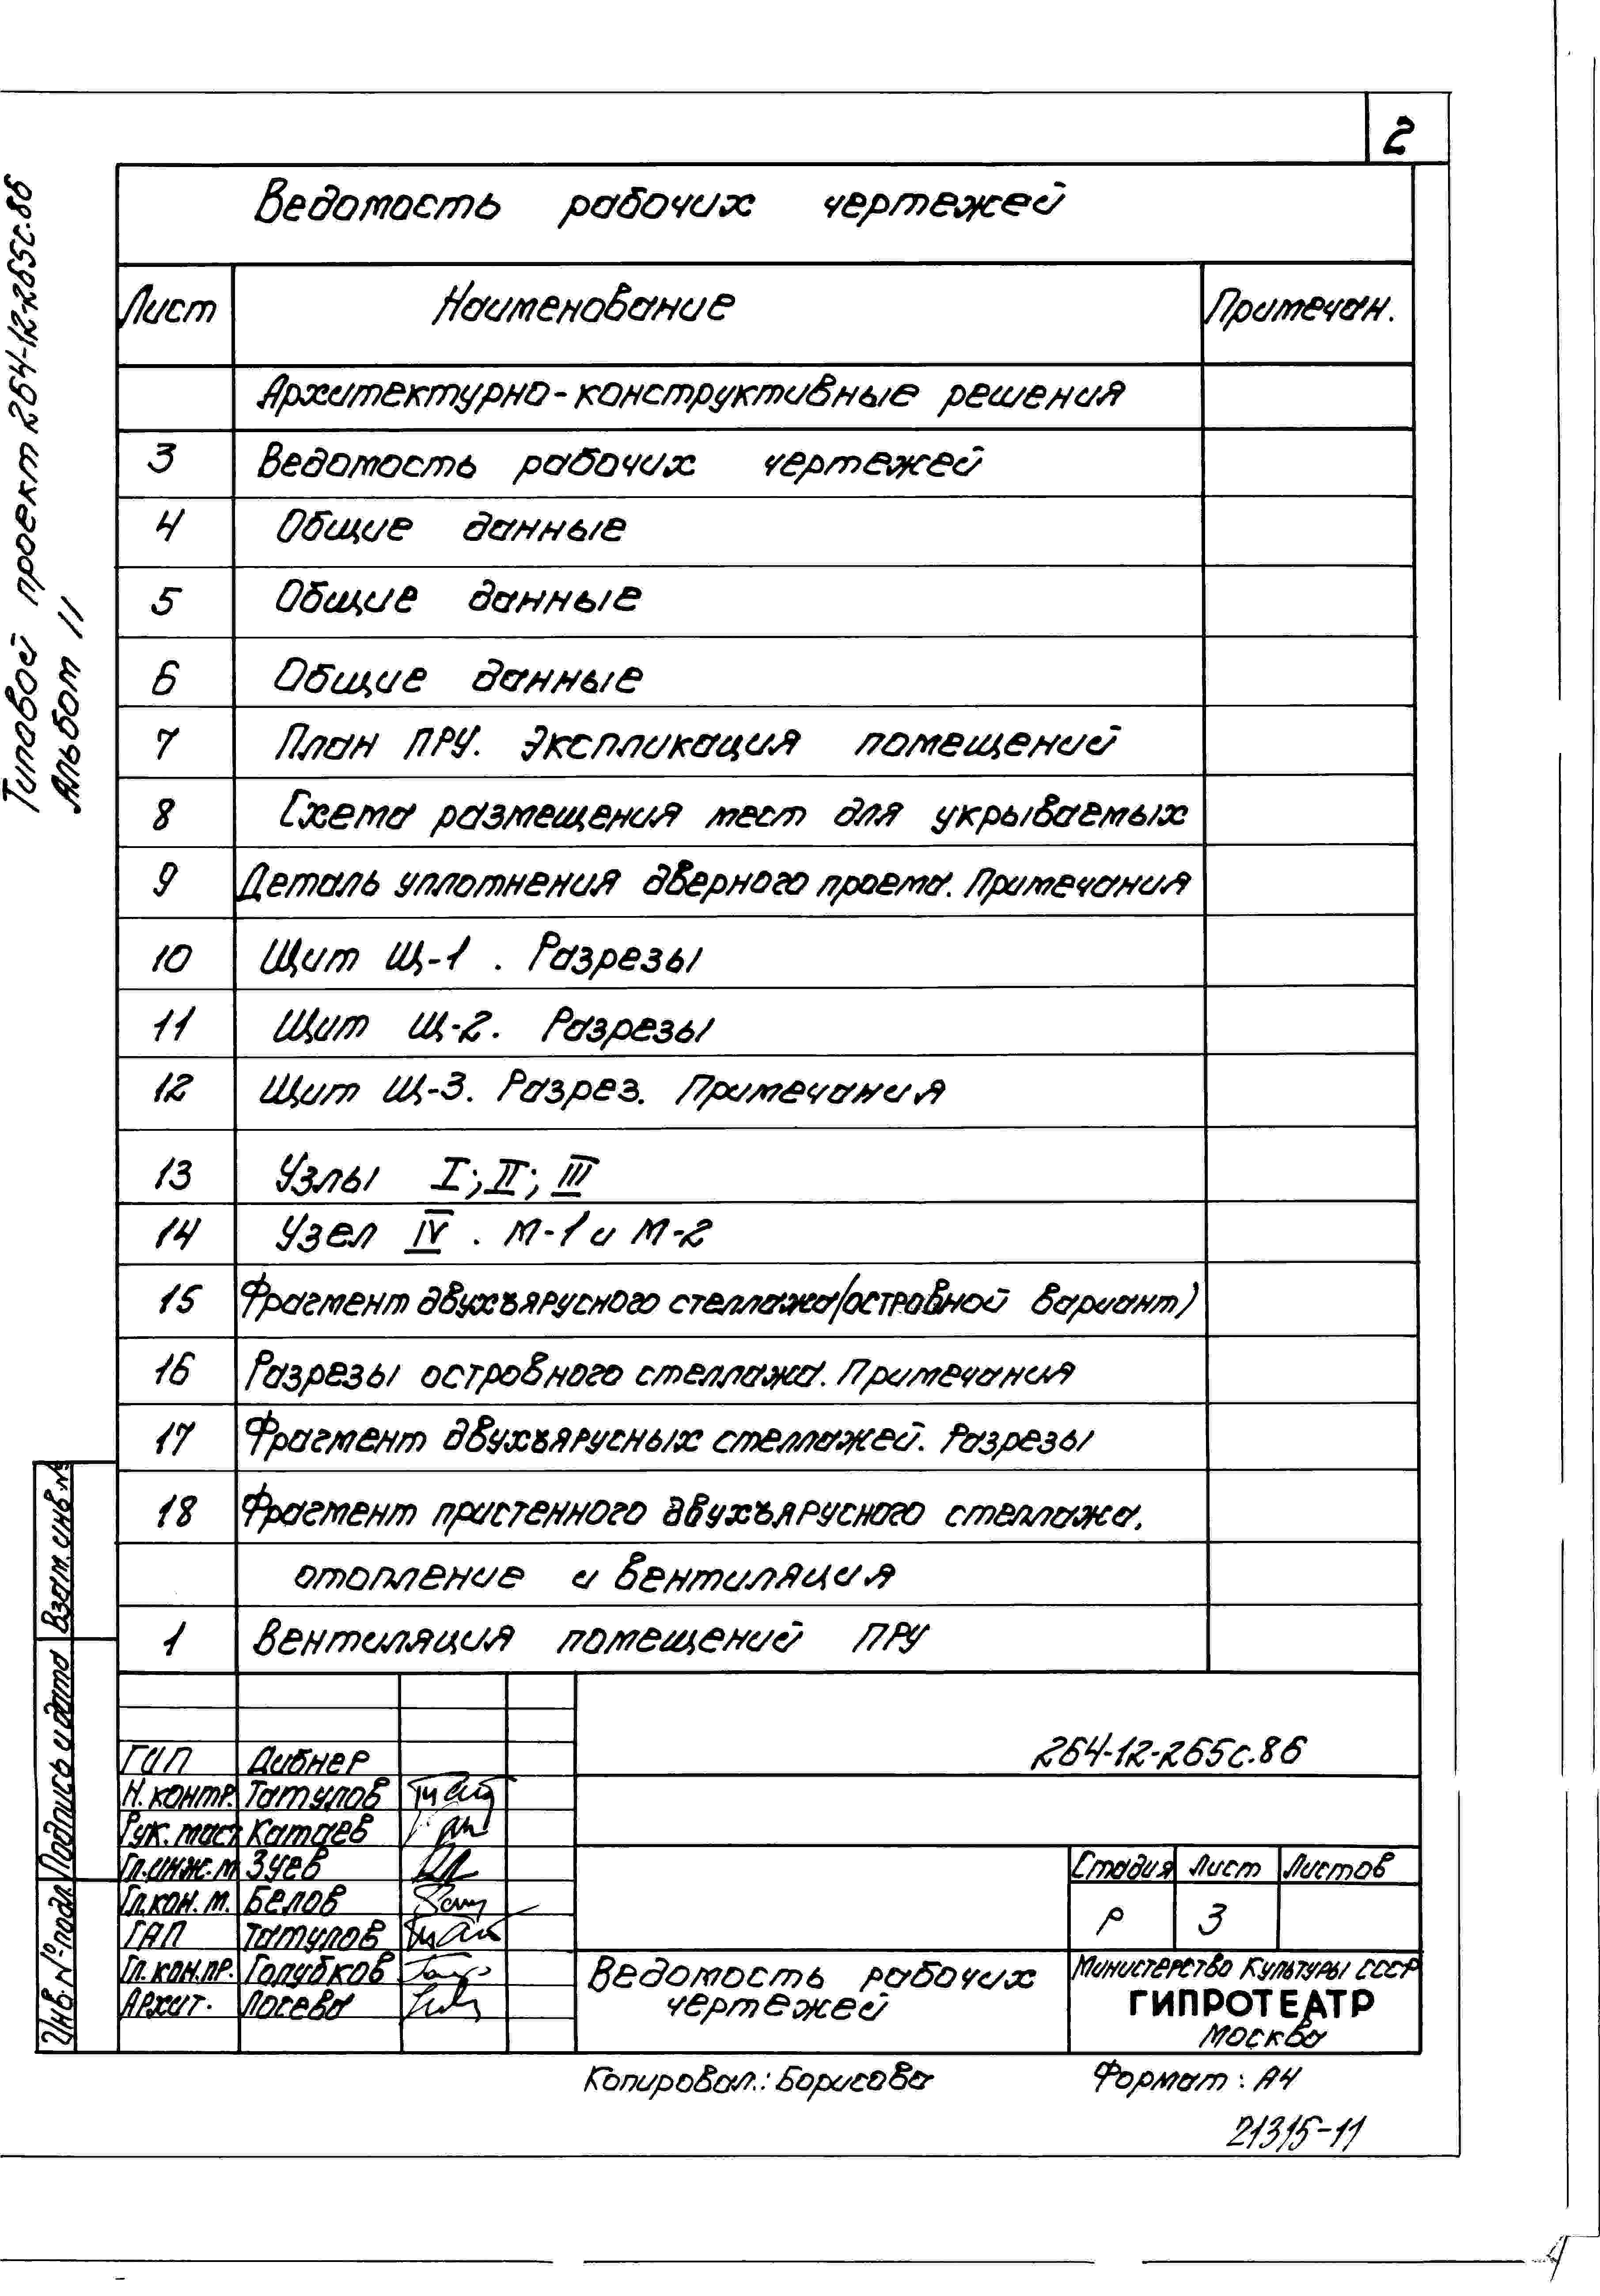 2
Типовой проект 264-12-265с.86
Альбом 11
Ведомость рабочих чертежей
Лист Наименование Примечан.
Архитектурно-конструктивные решения
3 Ведомость рабочих чертежей
4 Общие данные
5 Общие данные
6 Общие данные
7 План ПРУ. Экспликация помещений
8 Схема размещения мест для укрываемых
9 Деталь уплотнения дверного проема. Примечания
10 Щит Щ-1 . Разрезы
11 Щит Щ-2. Разрезы
12 Щит Щ-3. Разрез. Примечания
13 Узлы I; II; III
14 Узел IV . М-1 и М-2
15 Фрагмент двухъярусного стеллажа (островной вариант)
16 Разрезы островного стеллажа. Примечания
17 Фрагмент двухъярусных стеллажей. Разрезы
18 Фрагмент пристенного двухъярусного стеллажа.
отопление и вентиляция
1 Вентиляция помещений ПРУ
Взам. инв. №
Подпись и дата
Инв. № подл.
264-12-265с.86
ГИП Дибнер
Н. контр. Татулов
Рук. маст Катаев
Гл. инж. м. Зуев
Гл. кон. м. Белов
ГАП Татулов
Гл. кон. пр. Голубков
Архит. Лосева
Стадия Лист Листов
Р 3
Ведомость рабочих
чертежей
Министерство Культуры СССР
ГИПРОТЕАТР
Москва
Копировал.: Борисова Формат: А4
21315-11